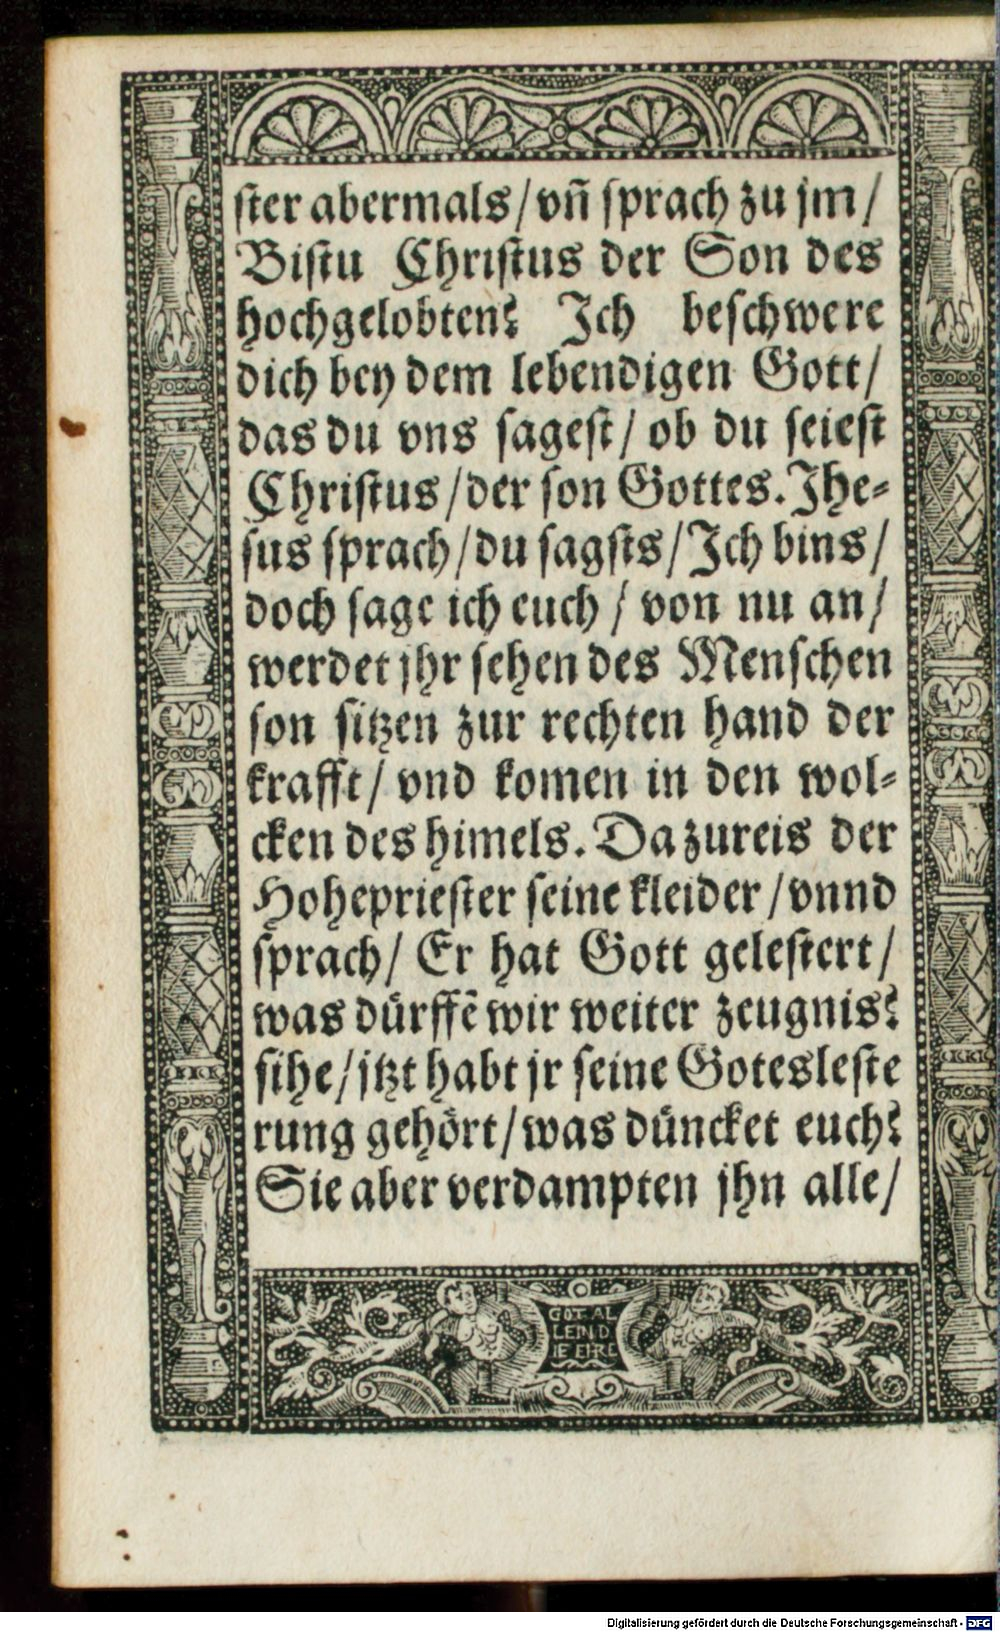 ster abermals/ vñ sprach zu jm/
Bistu Christus der Son des
hochgelobten? Ich beschwere
dich bey dem lebendigen Gott/
das du vns sagest/ ob du seiest
Christus/ der son Gottes. Jhe-
sus sprach/ du sagsts/ Ich bins/
doch sage ich euch/ von nu an/
werdet jhr sehen des Menschen
son sitzen zur rechten hand der
krafft/ vnd komen in den wol-
cken des himels. Da zureis der
Hohepriester seine kleider/ vnnd
sprach/ Er hat Gott gelestert/
was dürffẽ wir weiter zeugnis?
sihe/ jtzt habt jr seine Gotesleste
rung gehört/ was düncket euch?
Sie aber verdampten jhn alle/
GOT AL
LEIN D
IE EIRE
Digitalisierung gefördert durch die Deutsche Forschungsgemeinschaft - DFG